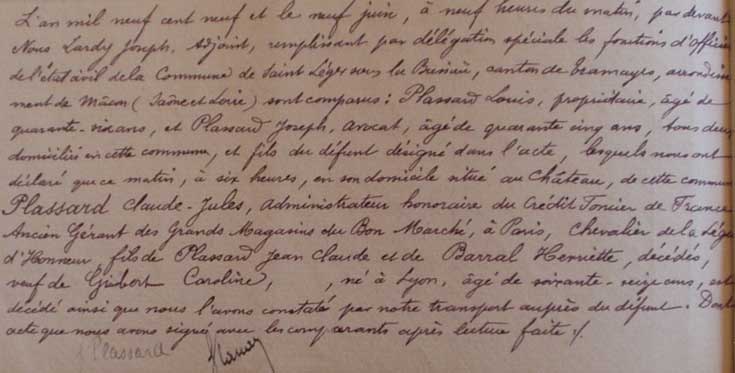 L'an mil neuf cent neuf et le neuf juin, à neuf heures du matin, par devant
Nous Lardy Joseph, Adjoint, remplissant par délégation spéciale les fonctions d'Officier
de l'état civil de la Commune de Saint Léger sous la Bussière, canton de Tramayes, arrondisse
ment de Mâcon (Saône et Loire) sont comparus : Plassard Louis, propriétaire, âgé de
quarante-six ans, et Plassard Joseph, Avocat, âgé de quarante cinq ans, tous deux
domiciliés en cette commune, et fils du défunt désigné dans l'acte, lesquels nous ont
déclaré que ce matin, à six heures, en son domicile situé au Château, de cette commune
Plassard Claude-Jules, Administrateur honoraire du Crédit Foncier de France
Ancien Gérant des Grands Magasins du Bon Marché, à Paris, Chevalier de la Légion
d'Honneur, fils de Plassard Jean Claude et de Barral Henriette, décédés,
veuf de Guibert Caroline, , né à Lyon, âgé de soixante-seize ans, est
décédé ainsi que nous l'avons constaté par notre transport auprès du défunt. Dont
acte que nous avons signé avec les comparants après lecture faite /.
Plassard